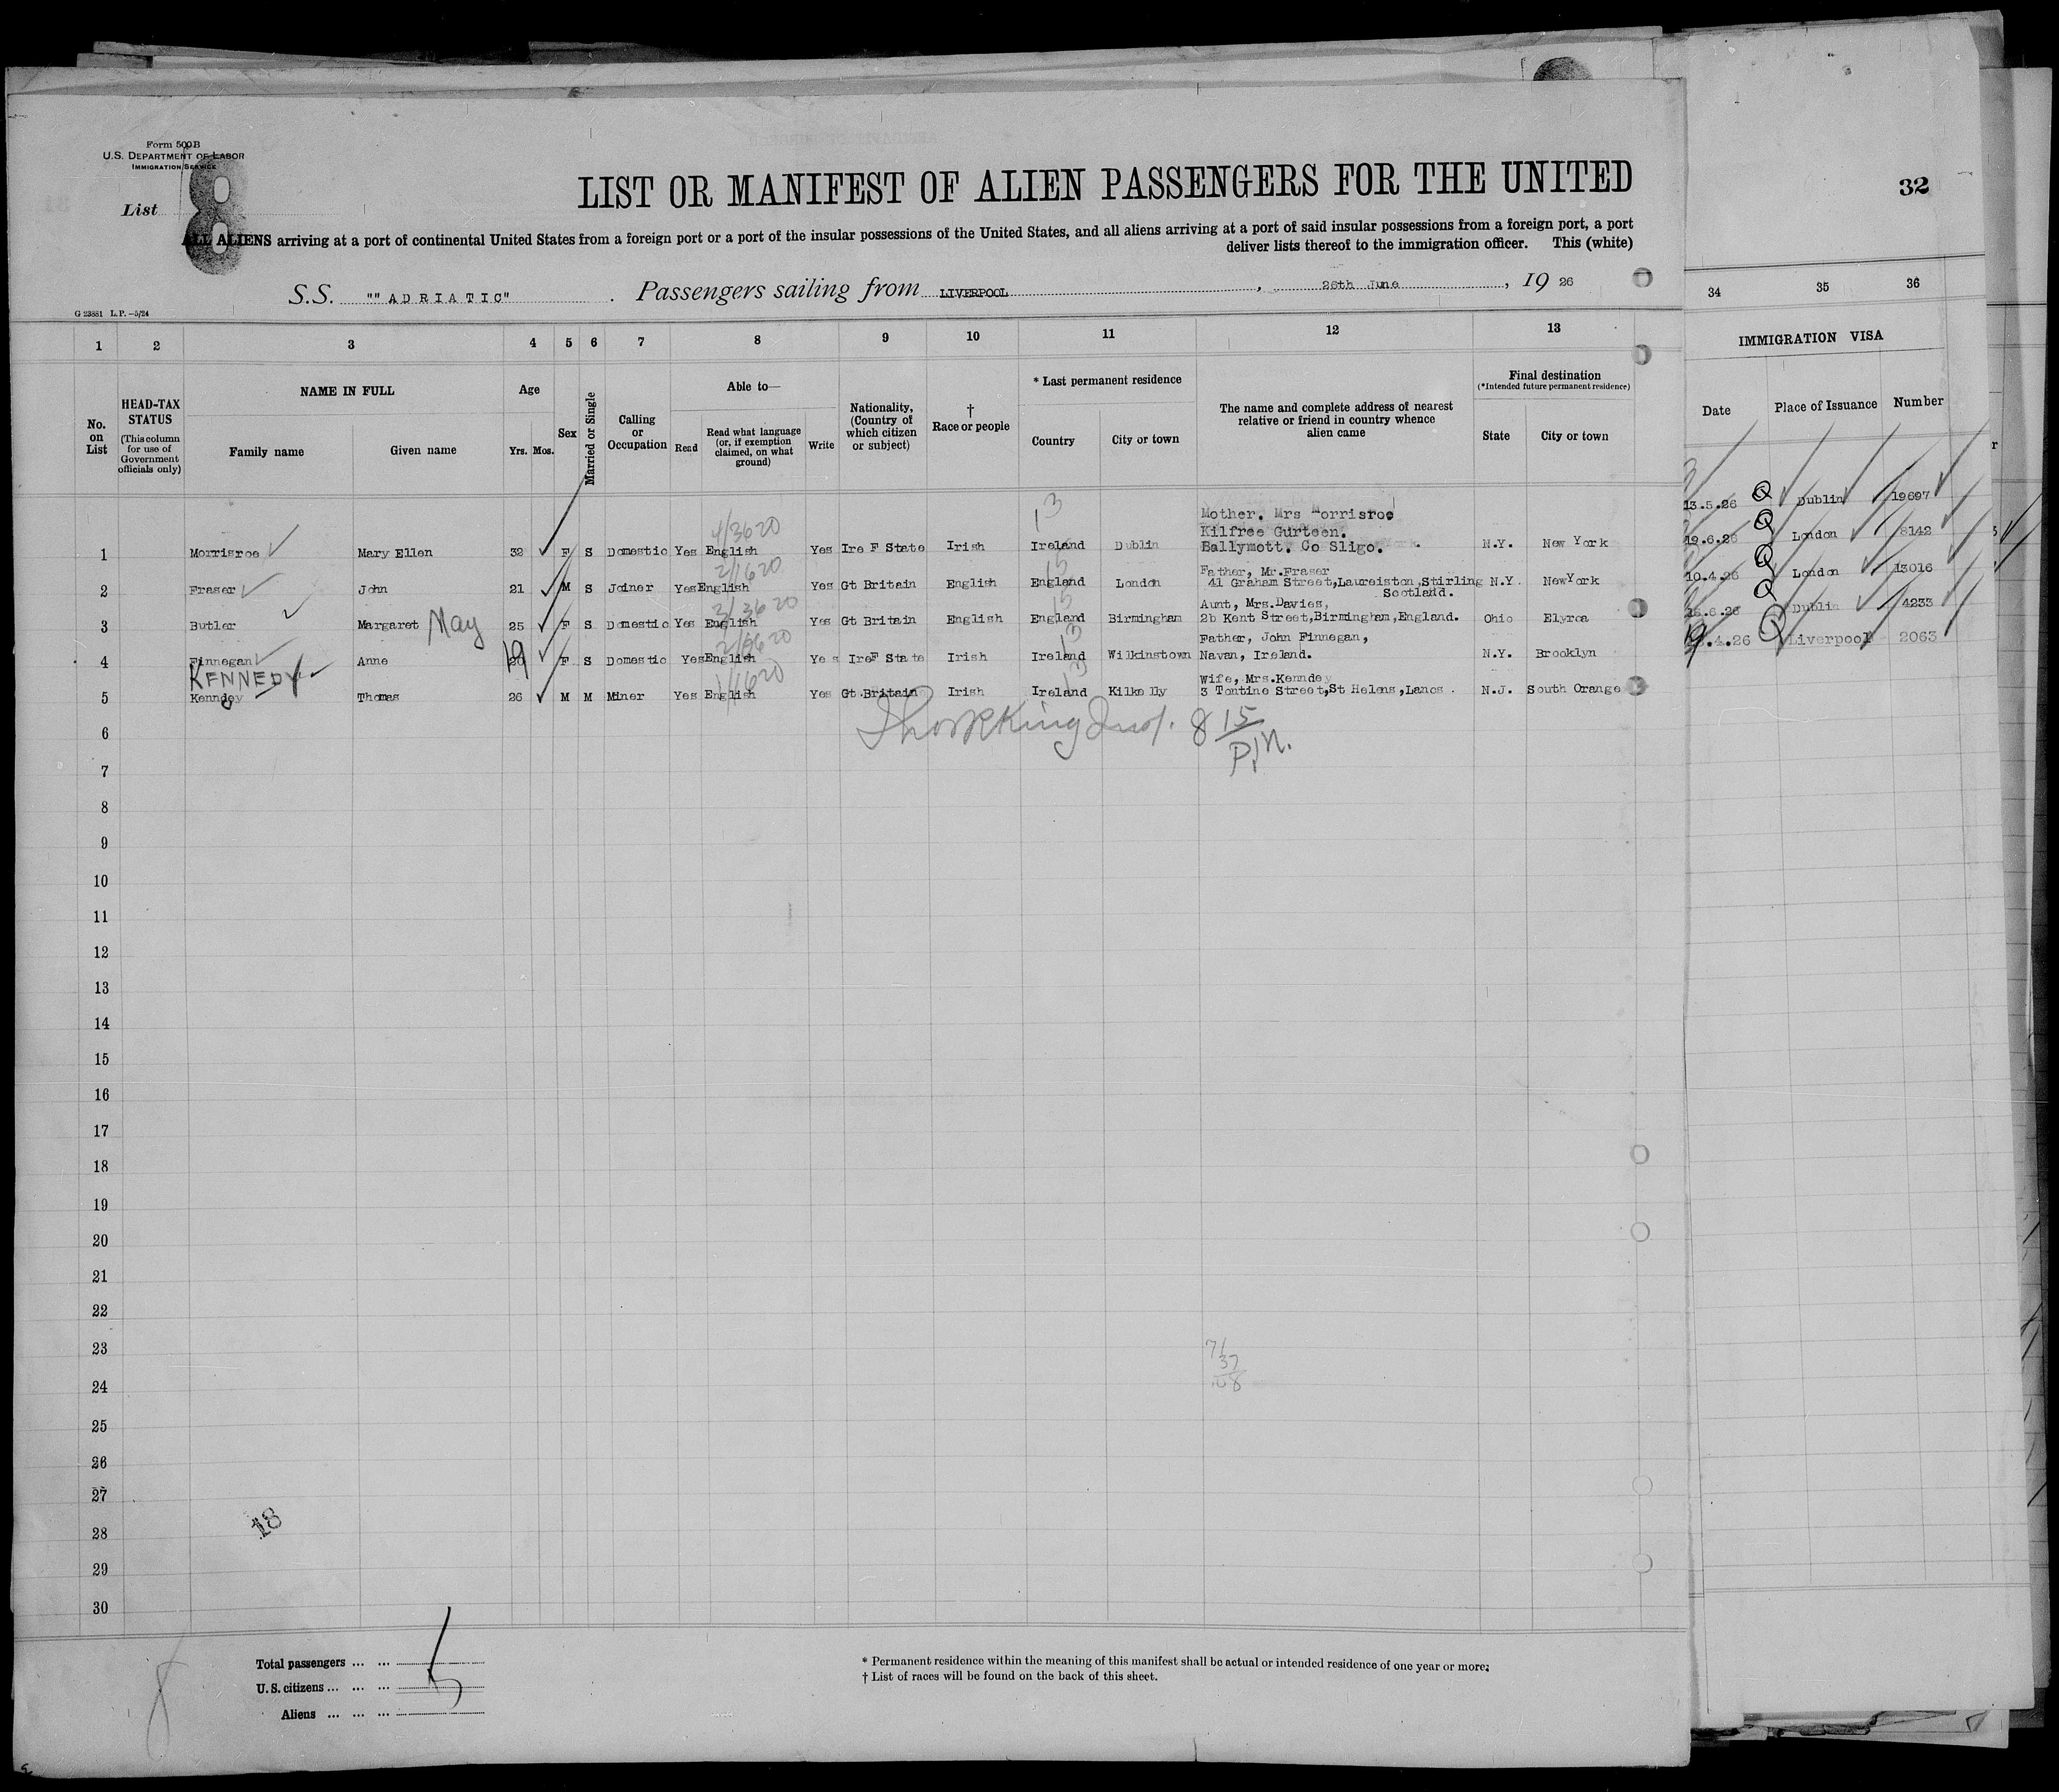 Form 500B
U.S. DEPARTMENT OF LABOR
IMMIGRATION SERVICE
List 8
LIST OR MANIFEST OF ALIEN PASSENGERS FOR THE UNITED
32
ALL ALIENS arriving at a port of continental United States from a foreign port or a port of the insular possessions of the United States, and all aliens arriving at a port of said insular possessions from a foreign port, a port
deliver lists thereof to the immigration officer. This (white)
S.S. ""ADRIATIC" . Passengers sailing from LIVERPOOL, 26th June, 1926
G 23881 L.P.—5/24
1 2 3 4 5 6 7 8 9 10 11 12 13 34 35 36
No. on List
HEAD-TAX STATUS
(This column for use of Government officials only)
NAME IN FULL
Family name Given name
Age
Yrs. Mos.
Sex
Married or Single
Calling or Occupation
Able to—
Read
Read what language (or, if exemption claimed, on what ground)
Write
Nationality, (Country of which citizen or subject)
† Race or people
* Last permanent residence
Country City or town
The name and complete address of nearest relative or friend in country whence alien came
Final destination
(*Intended future permanent residence)
State City or town
IMMIGRATION VISA
Date Place of Issuance Number
4/3620 13
Mother. Mrs Morrisroe
Kilfree Gurteen.
1 Morrisroe Mary Ellen 32 F S Domestic Yes English Yes Ire F State Irish Ireland Dublin Ballymott. Co Sligo. N.Y. New York 13.5.26 Q Dublin 19697
2/1620 15
Father, Mr.Fraser
2 Fraser John 21 M S Joiner Yes English Yes Gt Britain English England London 41 Graham Street,Laureiston,Stirling N.Y. NewYork 19.6.26 Q London 8142
Scotland.
3/3620 15
Aunt, Mrs.Davies,
3 Butler Margaret May 25 F S Domestic Yes English Yes Gt Britain English England Birmingham 2b Kent Street,Birmingham,England. Ohio Elyroa 10.4.26 Q London 13016
13
Father, John Finnegan,
4 Finnegan Anne 19 F S Domestic Yes English Yes IreF State Irish Ireland Wilkinstown Navan, Ireland. N.Y. Brooklyn Q Dublin 4233
KENNEDY 1/1620 13
Wife, Mrs.Kenndey
5 Kenndey Thomas 26 M M Miner Yes English Yes Gt Britain Irish Ireland Kilkelly 3 Tontine Street,St Helens,Lancs. N.J. South Orange Q Liverpool 2063
8 15
P.M.
6
7
8
9
10
11
12
13
14
15
16
17
18
19
20
21
22
23
24
25
26
27
28
29
30
71
37
18
Total passengers ... ... 5
U.S. citizens ... ... ...
Aliens ... ... ...
8
* Permanent residence within the meaning of this manifest shall be actual or intended residence of one year or more.
† List of races will be found on the back of this sheet.